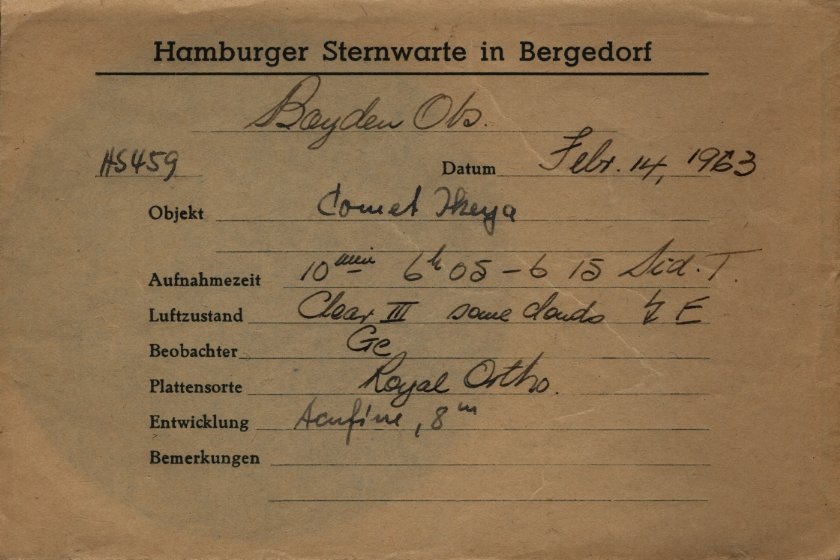 Hamburger Sternwarte in Bergedorf
Boyden Obs.
HS459 Datum Febr. 14, 1963
Objekt Comet Ikeya
Aufnahmezeit 10 min 6h 05 - 6 15 Sid. T.
Luftzustand Clear III some clouds E
Beobachter Ge
Plattensorte Royal Ortho.
Entwicklung Acufine, 8m
Bemerkungen